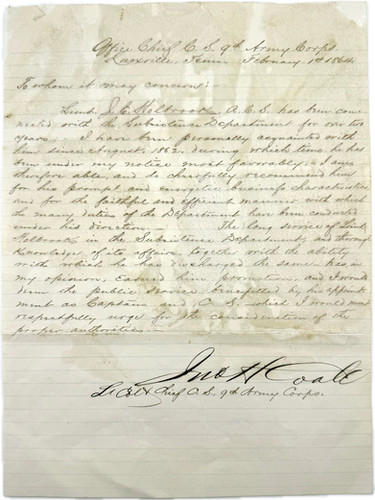 Office Chief C. S. 9th Army Corps.
Knoxville, Tenn February 1st 1864
To whom it may concern:
Lieut J. E. Holbrook A. C. S. has been con-
nected with the Subsistence Department for over two
years. I have been personally acquainted with
him since August, 1862, during which time he has
been under my notice most favorably. I am
therefore able, and do cheerfully recommend him
for his prompt and energetic business characteristics
and for the faithful and efficient manner with which
the many duties of the Department have been conducted
under his direction. The long service of Lieut
Holbrook in the Subsistence Department, and thorough
knowledge of its affairs, together with the ability
with which he has discharged the same, has in
my opinion, earned him promotion and I would
deem the public service benefitted by his appoint
ment as Captain and C. S. which I would most
respectfully urge for the consideration of the
proper authorities.
Jno H Coale
Lt Col & Chief C. S. 9th Army Corps.